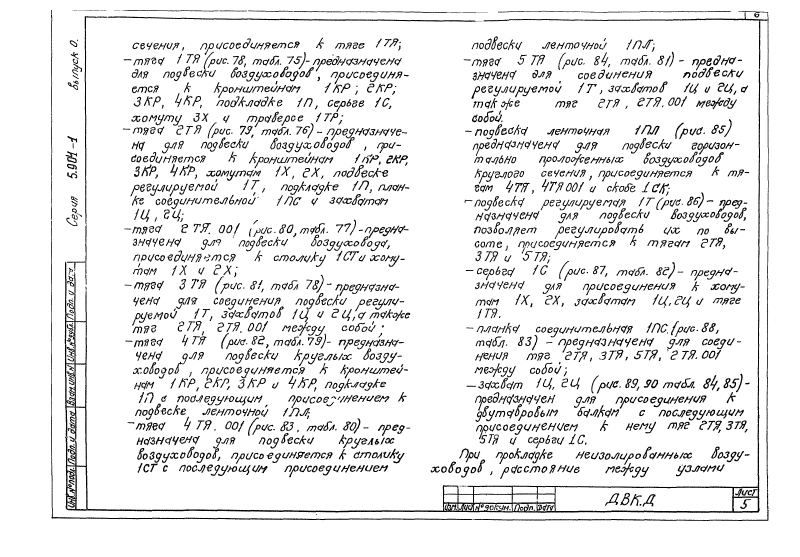 сечения, присоединяется к тяге 1ТЯ;
– тяга 1ТЯ (рис. 78, табл. 75) – предназначена
для подвески воздуховодов, присоединя-
ется к кронштейнам 1КР; 2КР;
3КР, 4КР, подкладке 1П, серьге 1С,
хомуту 3Х и траверсе 1ТР;
– тяга 2ТЯ (рис. 79, табл. 76) – предназначе-
на для подвески воздуховодов, при-
соединяется к кронштейнам 1КР, 2КР,
3КР, 4КР, хомутам 1Х, 2Х, подвеске
регулируемой 1Т, подкладке 1П, план-
ке соединительной 1ПС и захватам
1Ц, 2Ц;
– тяга 2ТЯ.001 (рис. 80, табл. 77) – предна-
значена для подвески воздуховода,
присоединяется к столику 1СТ и хому-
там 1Х и 2Х;
– тяга 3ТЯ (рис. 81, табл. 78) – предназна-
чена для соединения подвески регули-
руемой 1Т, захватов 1Ц и 2Ц, а также
тяг 2ТЯ, 2ТЯ.001 между собой;
– тяга 4ТЯ (рис. 82, табл. 79) – предназна-
чена для подвески круглых возду-
ховодов, присоединяется к кронштей-
нам 1КР, 2КР, 3КР и 4КР, подкладке
1П с последующим присоединением к
подвеске ленточной 1ПЛ;
– тяга 4ТЯ.001 (рис. 83, табл. 80) – пред-
назначена для подвески круглых
воздуховодов, присоединяется к столику
1СТ с последующим присоединением
подвески ленточной 1ПЛ;
– тяга 5ТЯ (рис. 84, табл. 81) – предна-
значена для соединения подвески
регулируемой 1Т, захватов 1Ц и 2Ц, а
также тяг 2ТЯ, 2ТЯ.001 между
собой.
– подвеска ленточная 1ПЛ (рис. 85)
предназначена для подвески горизон-
тально проложенных воздуховодов
круглого сечения, присоединяется к тя-
гам 4ТЯ, 4ТЯ001 и скобе 1СК;
– подвеска регулируемая 1Т (рис. 86) – пред-
назначена для подвески воздуховодов,
позволяет регулировать их по вы-
соте, присоединяется к тягам 2ТЯ,
3ТЯ и 5ТЯ;
– серьга 1С (рис. 87, табл. 82) – предна-
значена для присоединения к хому-
там 1Х, 2Х, захватам 1Ц, 2Ц и тяге
1ТЯ.
– планка соединительная 1ПС (рис. 88,
табл. 83) – предназначена для соеди-
нения тяг 2ТЯ, 3ТЯ, 5ТЯ, 2ТЯ.001
между собой;
– захват 1Ц, 2Ц (рис. 89, 90 табл. 84, 85) –
предназначен для присоединения к
двутавровым балкам с последующим
присоединением к нему тяг 2ТЯ, 3ТЯ,
5ТЯ и серьги 1С.
При прокладке неизолированных возду-
ховодов, расстояние между узлами
Серия 5.904-1 выпуск 0.
Инв.№ подл. Подп. и дата Взам.инв.№ Инв.№ дубл. Подп. и дата
Изм. Лист № докум. Подп. Дата
Д.ВК.Д
Лист
5
6